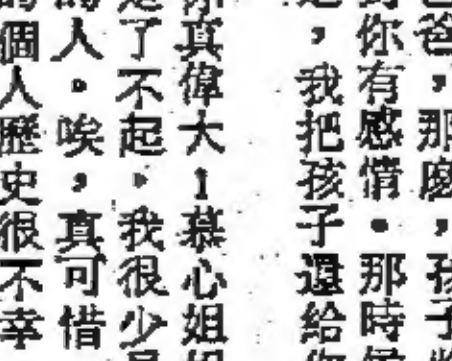 爸，那麽，孩子
你有感情。那時候
，我把孩子還給你
真偉大！慕心姐姐
了不起。我很少
人。唉，真可惜
個人歷史很不幸